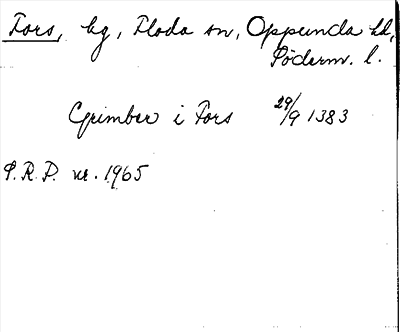 Fors, hg, Floda sn, Oppunda hd,
Söderm. l.
Grimber i Fors 29/9 1383
S.R.P. nr. 1965